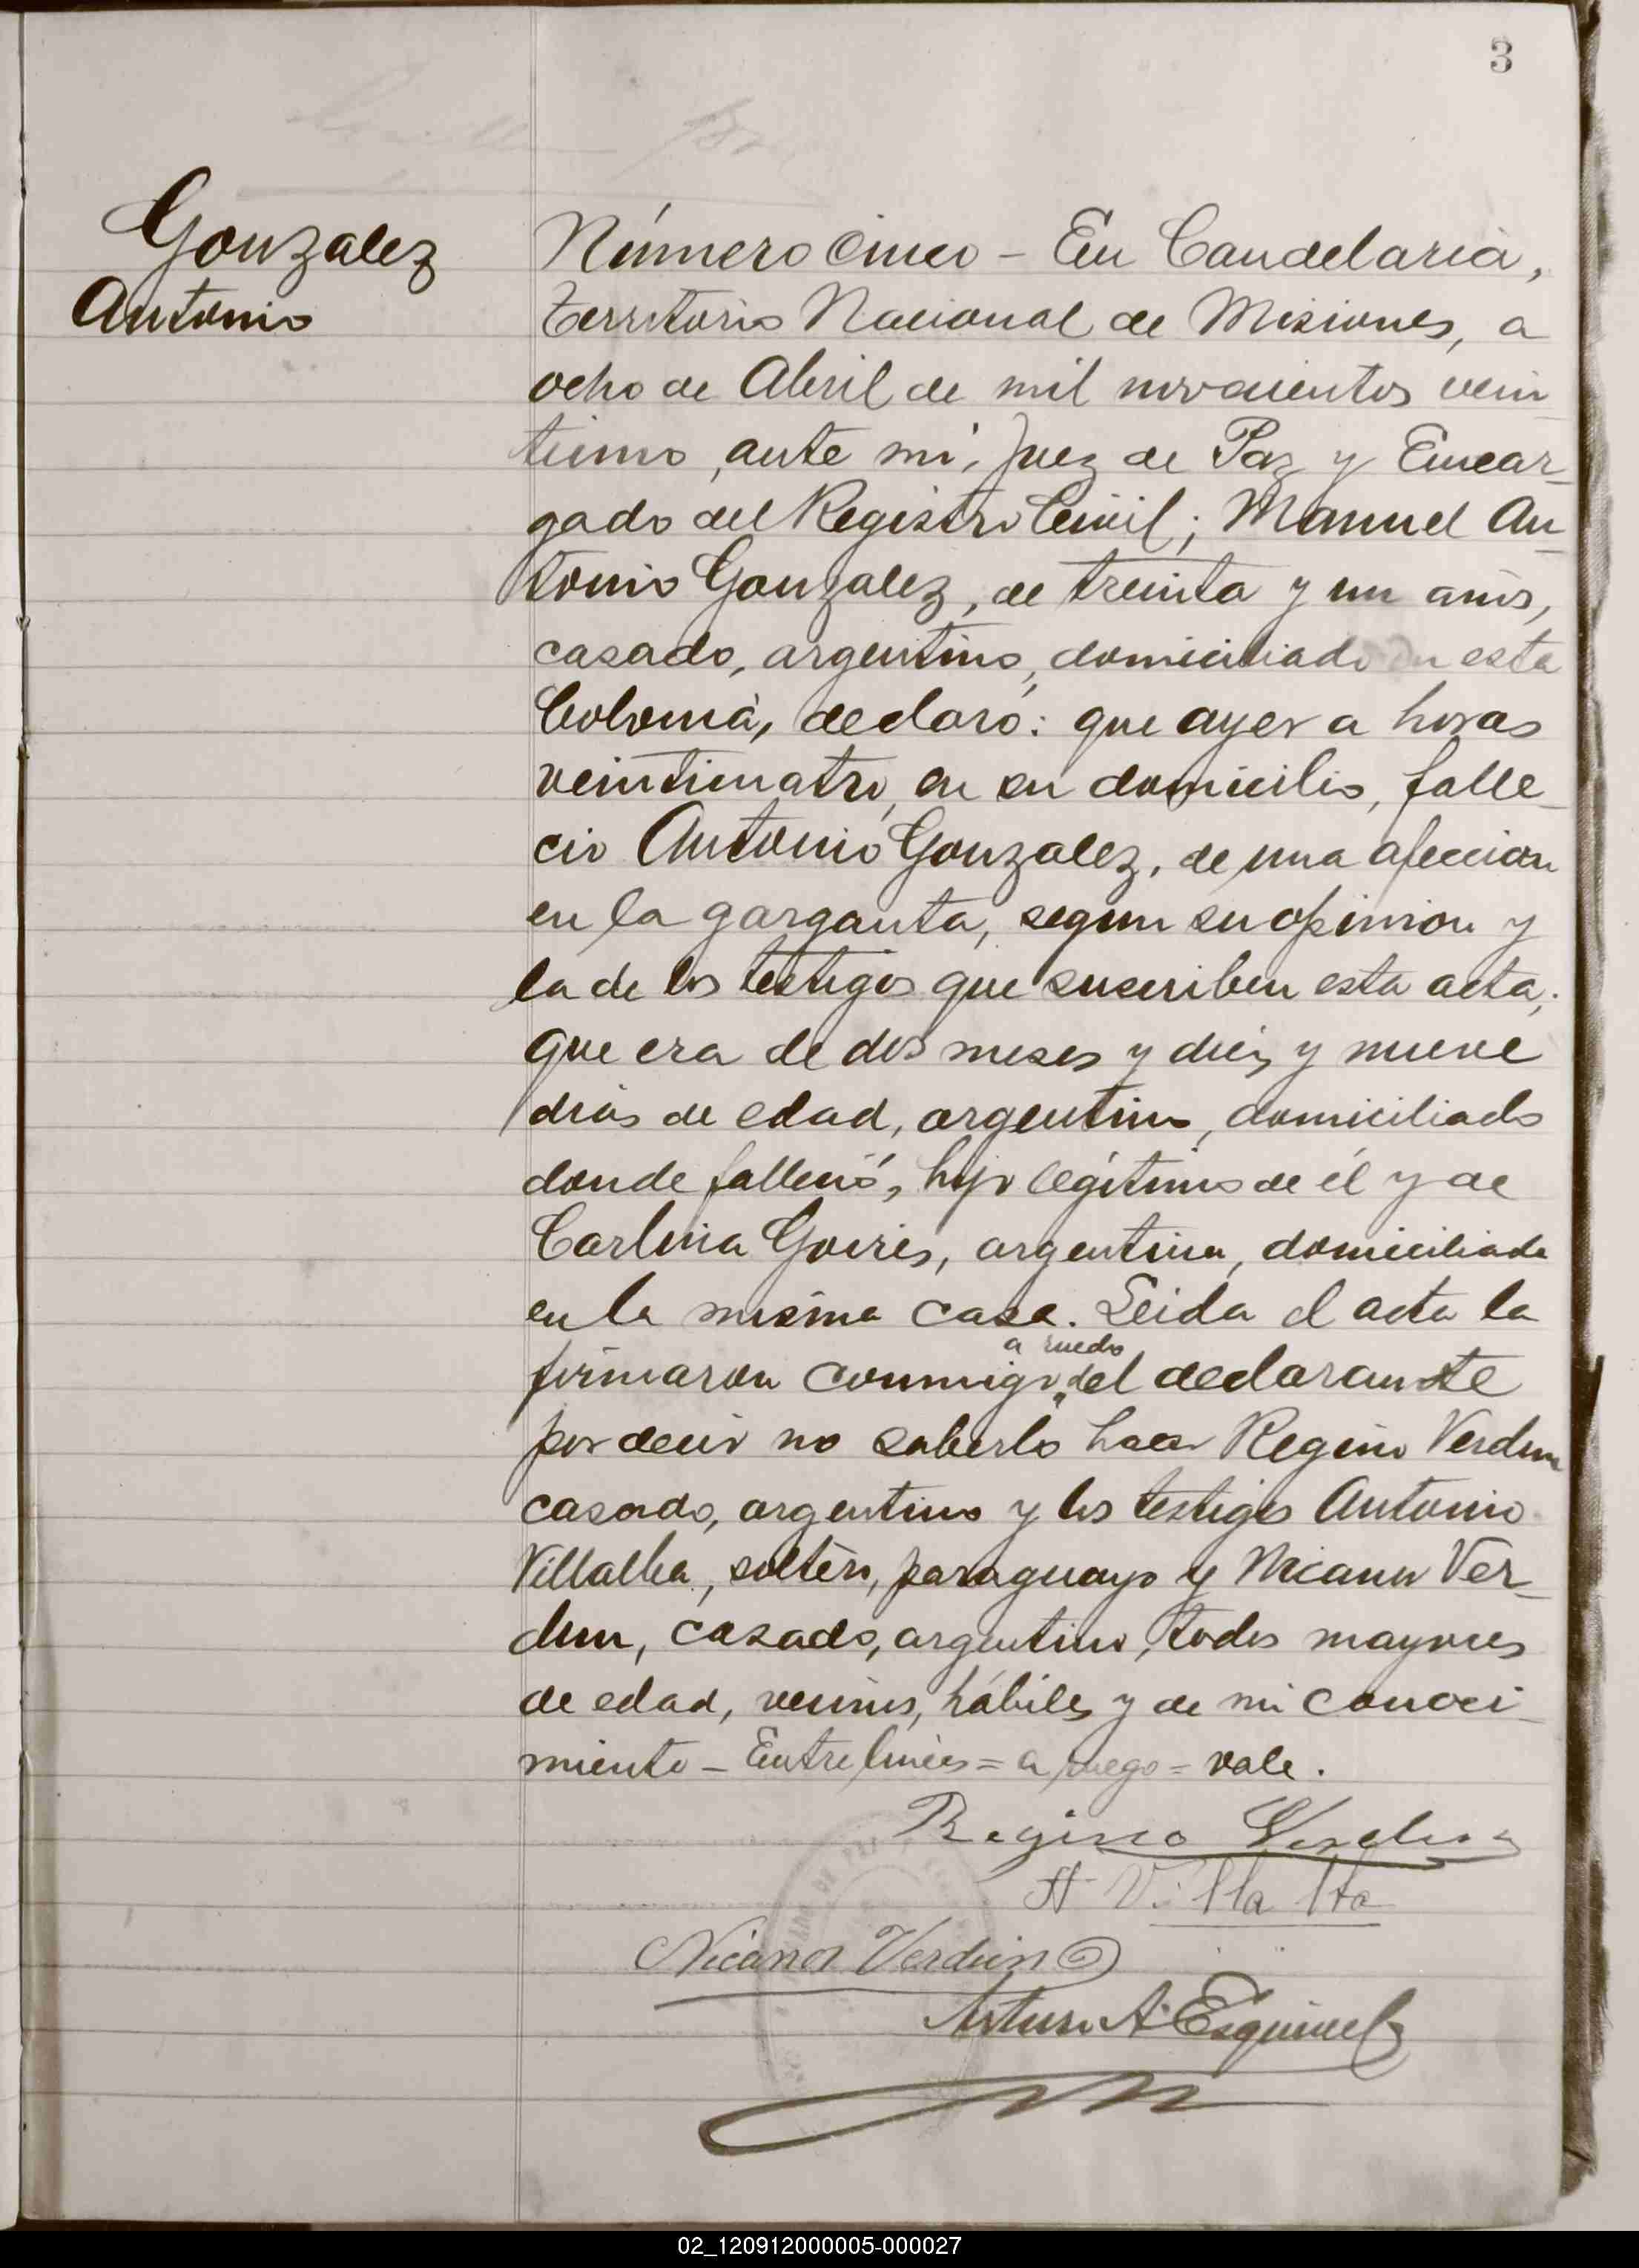 3
Gonzalez
Antonio
Número Cinco - En Candelaria,
territorio Nacional de Misiones, a
ocho de Abril de mil novecientos vein
tiuno, ante mí, Juez de Paz y Encar-
gado del Registro Civil; Manuel An-
tonio Gonzalez, de treinta y un años,
casado, argentino, domiciliado en esta
Colonia, declaró: que ayer a horas
veinticuatro, en su domicilio, falle-
cio Antonio Gonzalez, de una afeccion
en la garganta, segun su opinion y
la de los testigos que suscriben esta acta;
que era de dos meses y diez y nueve
dias de edad, argentino, domiciliado
donde falleció, hijo legítimo de él y de
Carlina, argentina, domiciliada
en la misma casa. Leida el acta la
a ruedo
firmaron conmigo del declarante
por decir no saberlo hacer Regino Verdun
casado, argentino y los testigos Antonio
Villalba, soltero, paraguayo y Nicanor Ver-
dun, casado, argentino, todos mayores
de edad, vecinos, hábiles y de mi conoci-
miento - Entrelineas = a ruego = vale.
Regino Verdun
A Villalba
Nicanor Verdun
Arturo A. Esquivel
02_120912000005-000027